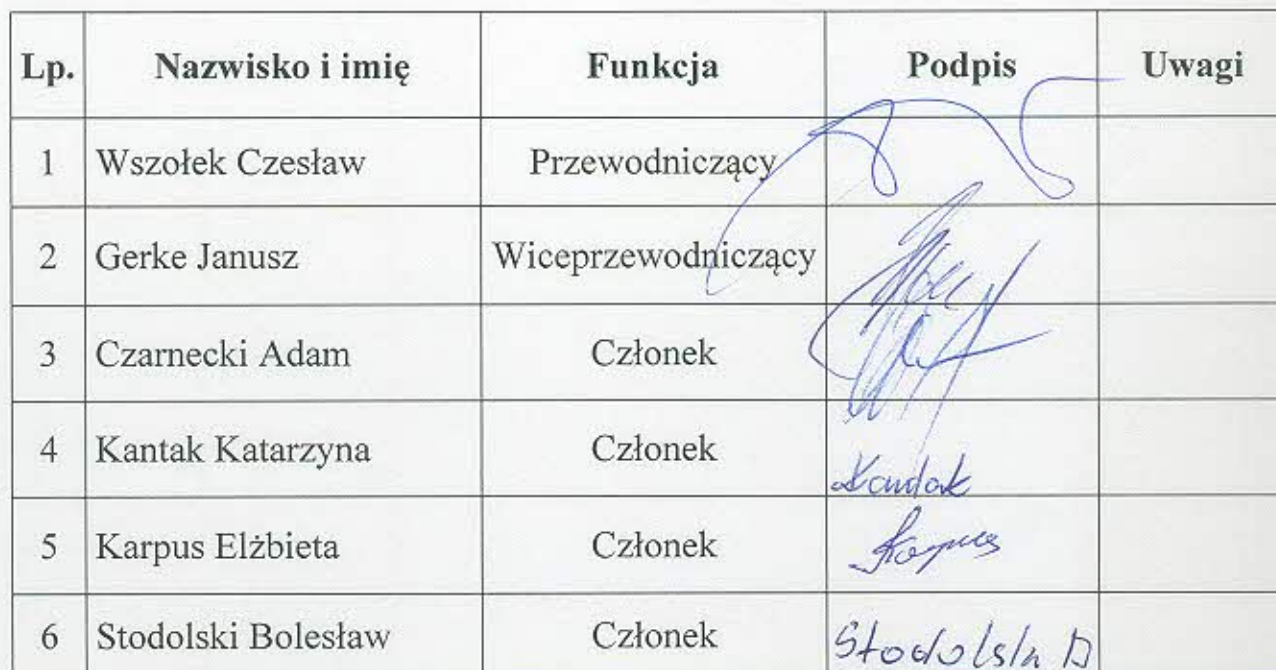 Lp. Nazwisko i imię Funkcja Podpis Uwagi
1 Wszołek Czesław Przewodniczący
2 Gerke Janusz Wiceprzewodniczący
3 Czarnecki Adam Członek
4 Kantak Katarzyna Członek Kantak
5 Karpus Elżbieta Członek Karpus
6 Stodolski Bolesław Członek